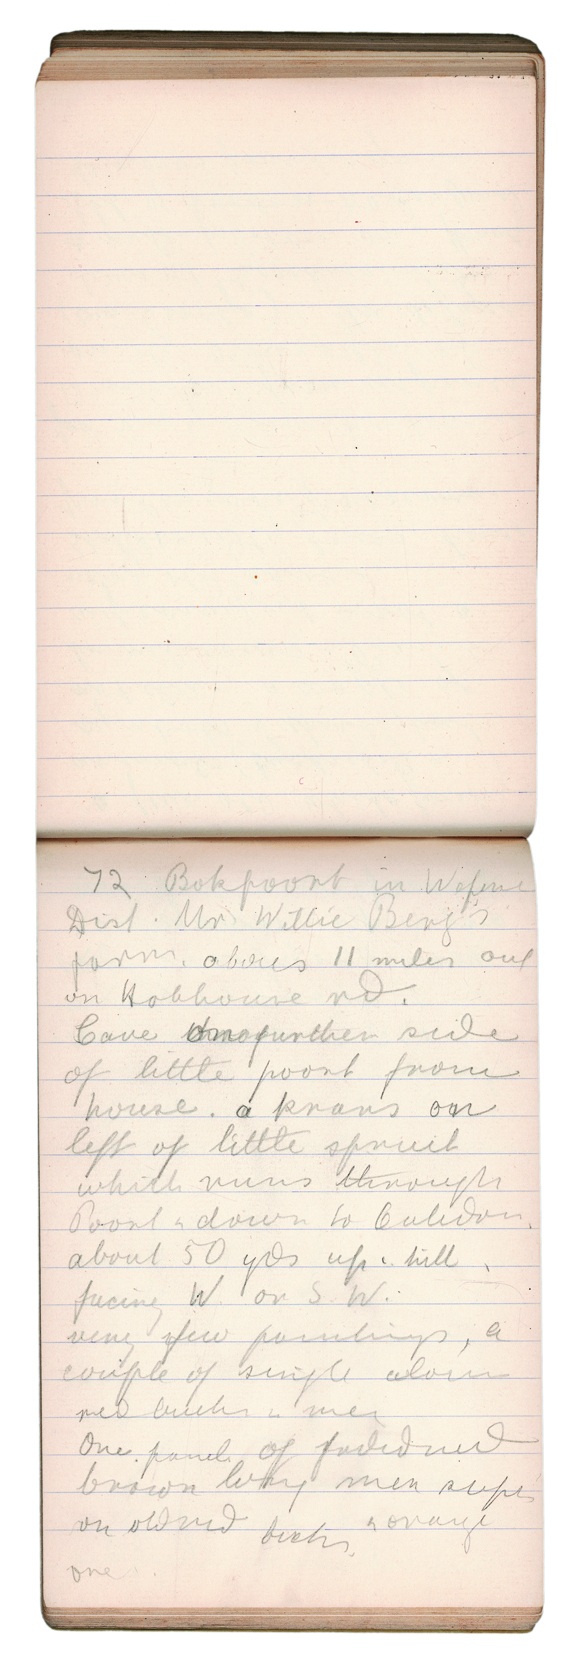 72 Bokpoort in Wepene
Dist. Mr Willie Berg's
farm. about 11 miles out
on Hobhouse rd.
Cave on further side
of little poort from
house. a krans on
left of little spruit
which runs through
Poort & down to Caledon.
about 50 yds up hill,
facing W or S.W.
very few paintings, a
couple of single colour
red bucks & men
One panel of faded red
brown long men super
on old red bucks, & orange
one.